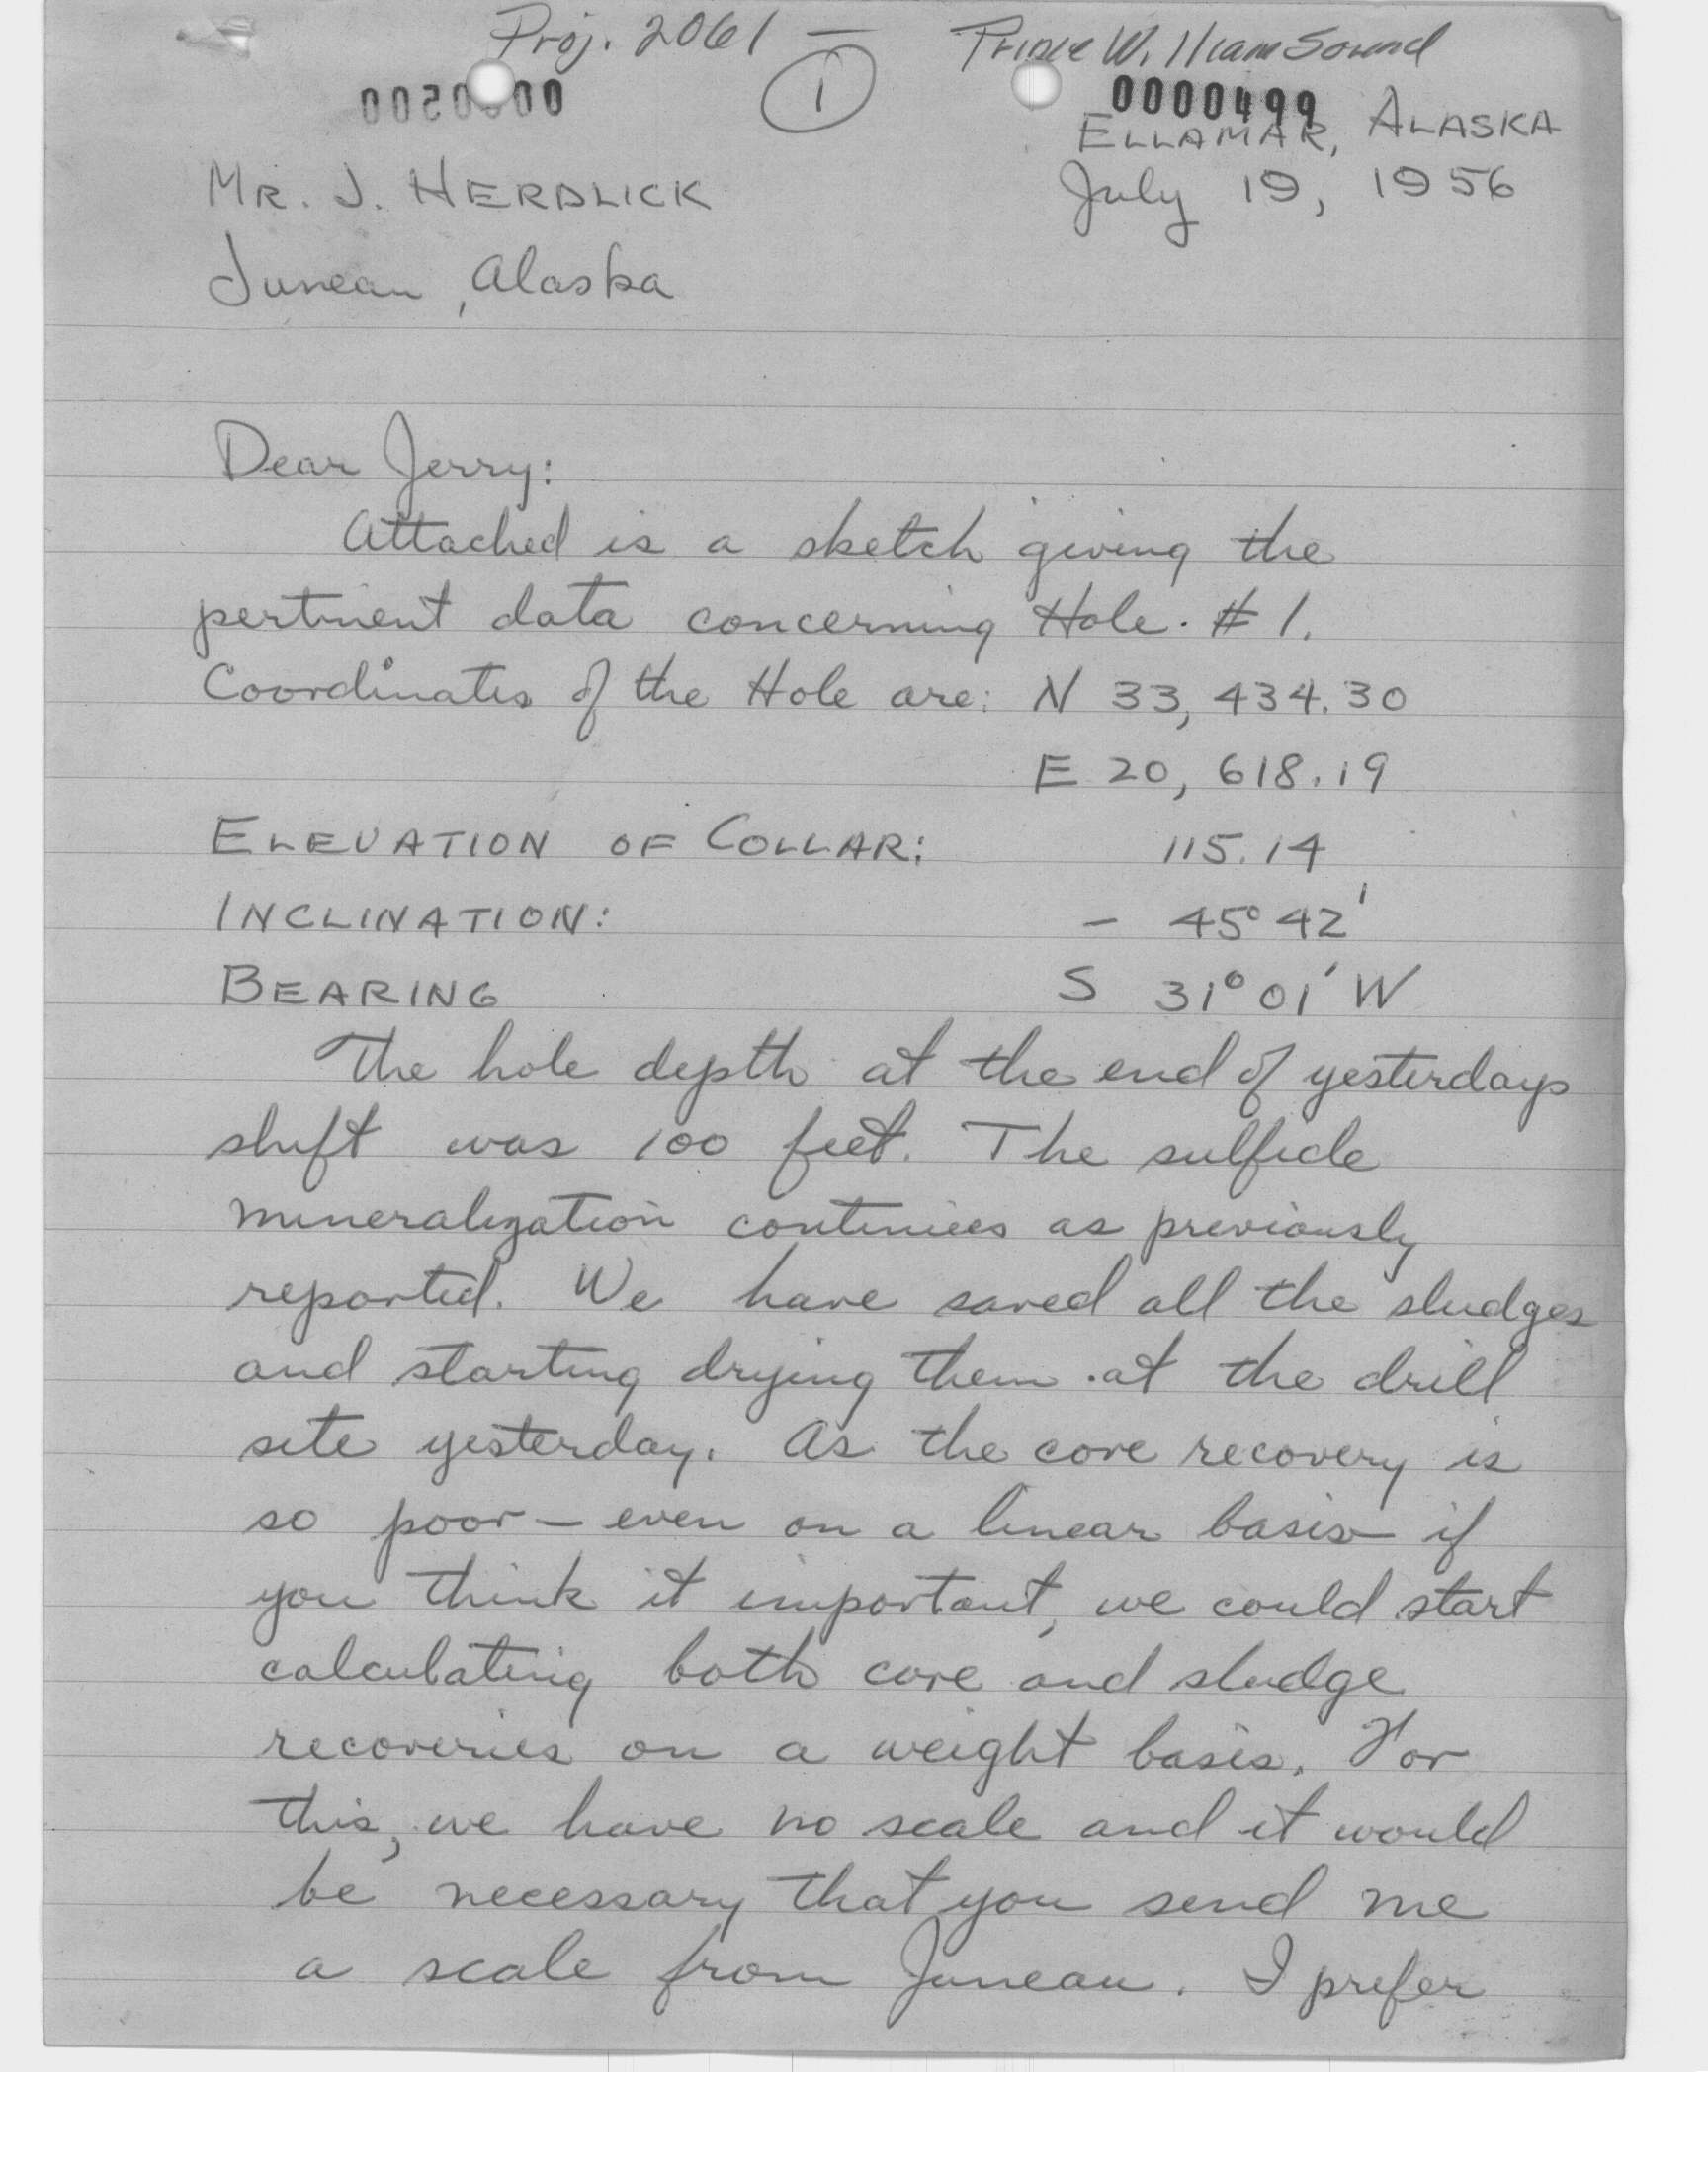 Proj. 2061 — Prince William Sound
1
0000499
ELLAMAR, ALASKA
MR. J. HERDLICK
July 19, 1956
Juneau, Alaska
Dear Jerry:
Attached is a sketch giving the
pertinent data concerning Hole. # 1.
Coordinates of the Hole are: N 33,434.30
E 20,618.19
ELEVATION OF COLLAR: 115.14
INCLINATION: - 45° 42'
BEARING S 31° 01' W
The hole depth at the end of yesterdays
shift was 100 feet. The sulfide
mineralization continues as previously
reported. We have saved all the sludges
and starting drying them at the drill
site yesterday. As the core recovery is
so poor - even on a linear basis - if
you think it important, we could start
calculating both core and sludge
recoveries on a weight basis. For
this, we have no scale and it would
be necessary that you send me
a scale from Juneau. I prefer